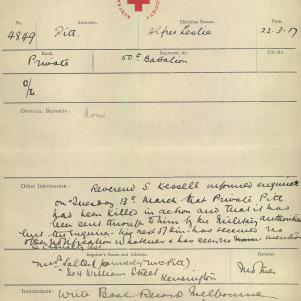 SOCIETY
AUSTRA
No. Surname. Christian Names. Date.
4849 Pitt. Alfred Leslie 22-3-17
Rank. Regiment, &c. File No.
Private 50th Battalion
C/L
OFFICIAL REPORTS: None.
Other Information: Reverend S Kessell informed enquirer
on Tuesday 13th March that Private Pitt
had been killed in action and that it has
been sent through to him by the Military authorities
but the Enquirer - his next of kin has received no
other notification whatever & has seen no mention
in Casualty list
Inquirer's Name and Address.
Mrs Salter (formerly Mrs Pitt)
No 4 William Street
Kensington
Instructions: Write Base Record Melbourne